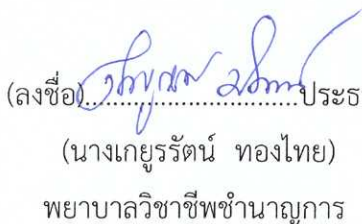 (ลงชื่อ)..............................ประธ
(นางเกยูรรัตน์ ทองไทย)
พยาบาลวิชาชีพชำนาญการ